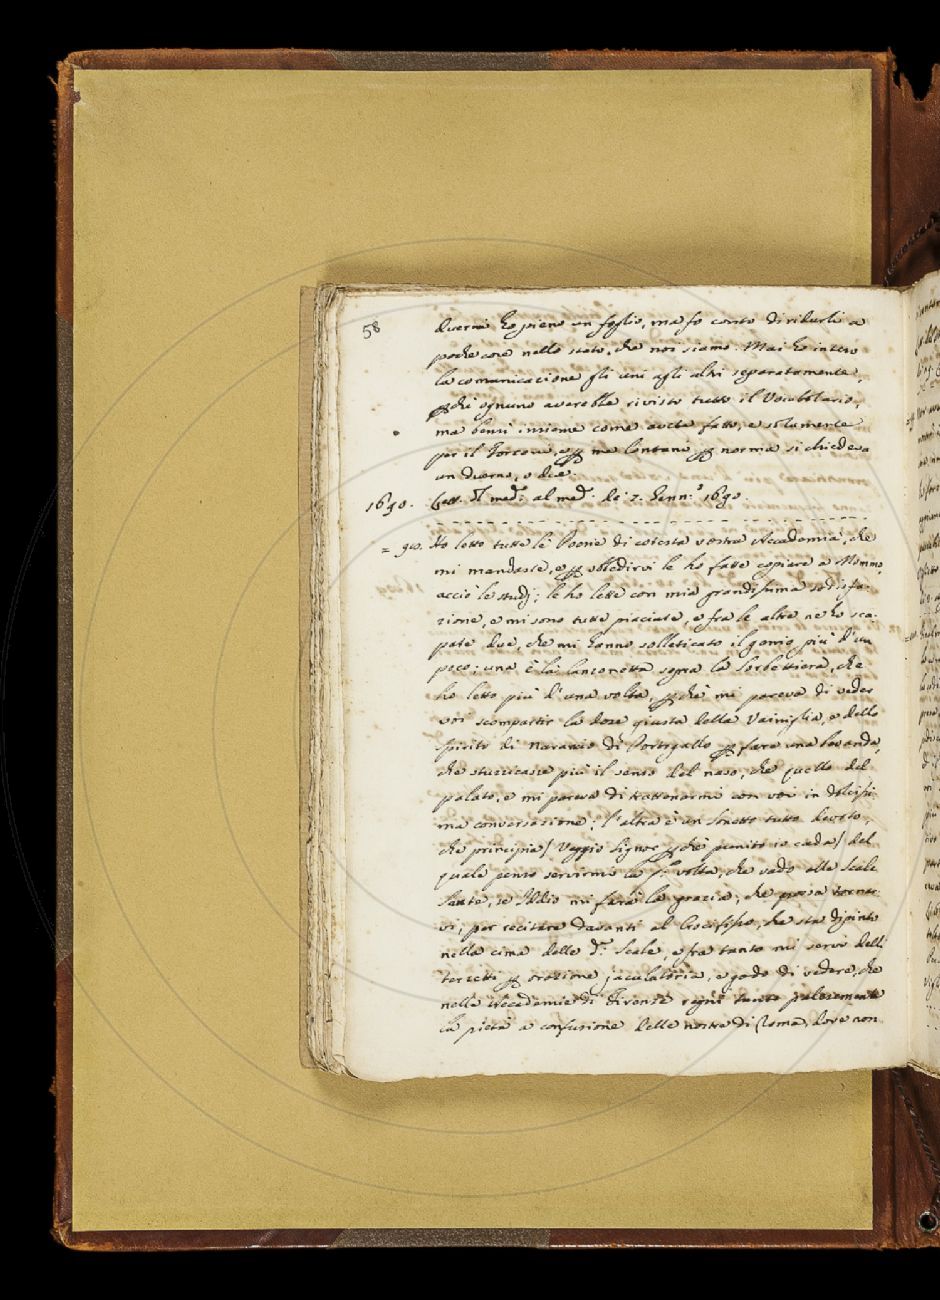 58
duerni ho pieno un foglio, ma fo conto di ridurli a
poche cose nello stato, che noi siamo. Mai ho inteso
la comunicazione gli uni agli altri separatamente,
ꝑchè ognuno averebbe rivisto tutto il Vocabolario,
ma bensì insieme come avete fatto, e solamente
per il Torcova, e ꝑ me lontano ꝑ norma si chiedeva
un duerno, o due.
1690. Lett. dẽl med.º al med.º de' 7. Genn.º 1690.
= 90. Ho letto tutte le Poesie di cotesta vostra Accademia, che
mi mandaste, e ꝑ obbedirvi le ho fatte copiare a Mommo,
acciò le studj; le ho lette con mia grandissima sodisfa-
zione, e mi sono tutte piaciute, e fra le altre ne ho sca-
pate due, che mi hanno solleticato il genio più d'un
poco; una è la canzonetta sopra la Sorbettiera, che
ho letto più d'una volta, ꝑchè mi pareva di veder
voi scompartir la dose giusta della Vainiglia, e dello
spirito di naranio di Portogallo ꝑ fare una bevanda,
che stuzzicasse più il senso del naso, che quello del
palato, e mi pareva di trattenermi con voi in dolcissi-
ma conversazione; l'altra è un sonetto tutto devoto,
che principia/ Veggio Signor ꝑchè punito io cada/ del
quale penso servirmi la pª volta, che vado alle Scale
Sante, se Iddio mi farà la grazia, che possa tornar-
vi, per recitare davanti al Crocifisso, che sta dipinto
nella cima delle dẽ Scale, e fra tanto mi servo delli
terzetti ꝑ orazione jaculatoria, e godo di vedere, che
nelle Accademie di Firenze regni tanto palesemente
la pietà a confusione delle nostre di Roma, dove non